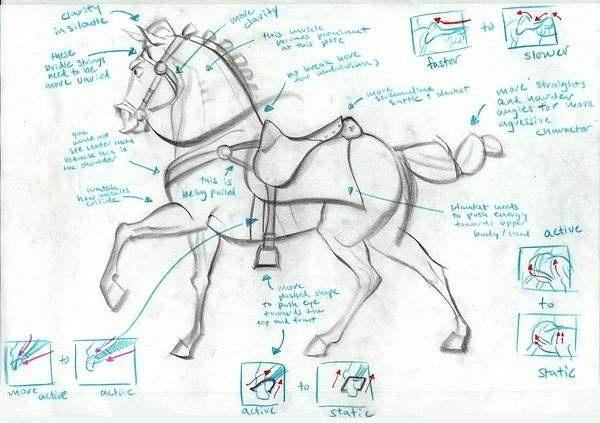 clarity
in siloute
more
clarity
this muscle
becomes prominant
at this pose
these
bridle strings
need to be
more varied
no break here
more
streamline
sattle + blacket
faster
to
slower
more straights
and harder
angles for more
agressive
character
you
would not
see center
because this is
the shoulder
this is
being pulled
watch
how muscles
collide
needs
to push energy
towards upper
body/head
more
pushed shape
to push eye
towards the
top and front
active
to
static
more active
to
active
active
to
static